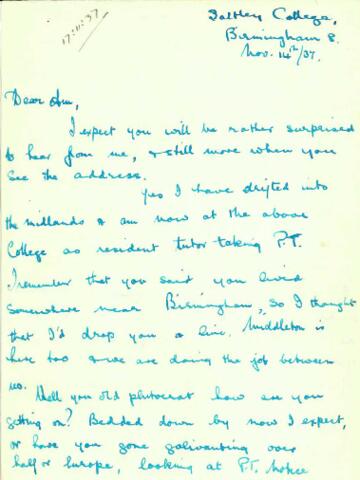 17.11.37
Saltley College,
Birmingham 8.
Nov. 14th/37.
Dear
I expect you will be rather surprised
to hear from me, & still more when you
see the address.
Yes I have drifted into
the midlands & am now at the above
College as resident tutor taking P.T.
I remember that you said you lived
somewhere near Birmingham, so I thought
that I'd drop you a line. Middleton is
here too & we are doing the job between
us.
Well you old plutocrat how are you
getting on? Bedded down by now I expect,
or have you gone galivanting over
half of Europe, looking at P.T.